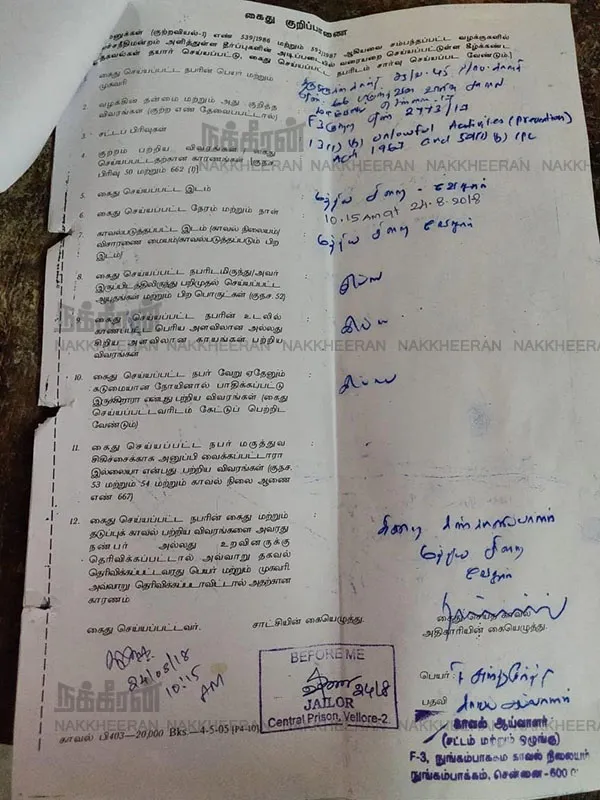 கைது குறிப்பாணை
மனுக்கள் (குற்றவியல்-1) எண் 539/1986 மற்றும் 592/1987 ஆகியவை சம்பந்தப்பட்ட வழக்குகளில்
உச்சநீதிமன்றம் அளித்துள்ள தீர்ப்புகளின் அடிப்படையில் வரையறை செய்யப்பட்டுள்ள கீழ்க்கண்ட
தகவல்கள் தயார் செய்யப்பட்டு, கைது செய்யப்பட்ட நபரிடம் சார்வு செய்யப்பட வேண்டும்)
கைது செய்யப்பட்ட நபரின் பெயர் மற்றும்
முகவரி
2. வழக்கின் தன்மை மற்றும் அது குறித்த
விவரங்கள் (குற்ற எண் தேவைப்பட்டால்)
F3 குற்ற எண் 2773/17
3. சட்டப் பிரிவுகள்
13(1) (b) unlawful Activities (Prevention)
Act 1967 and 505(1) b) IPC
4. குற்றம் பற்றிய விவரங்கள் / கைது
செய்யப்பட்டதற்கான காரணங்கள் (குநச.
பிரிவு 50 மற்றும் 662 (1)
நக்கீரன்
NAKKHEERAN NAKKHEERAN NAKKHEERAN
5. கைது செய்யப்பட்ட இடம் : மத்திய சிறை - வேலூர்
6. கைது செய்யப்பட்ட நேரம் மற்றும் நாள் : 10.15 AM at 24.8.2018
7. காவல்படுத்தப்பட்ட இடம் (காவல் நிலையம்/ : மத்திய சிறை வேலூர்
விசாரணை மையம்/காவல்படுத்தப்படும் பிற
இடம்)
8. கைது செய்யப்பட்ட நபரிடமிருந்து/அவர் : இல்லை
இருப்பிடத்திலிருந்து பறிமுதல் செய்யப்பட்ட
ஆயுதங்கள் மற்றும் பிற பொருட்கள் (குநச. 52)
நக்கீரன்
9. கைது செய்யப்பட்ட நபரின் உடலில் : இல்லை
காணப்பட்ட பெரிய அளவிலான அல்லது
சிறிய அளவிலான காயங்கள் பற்றிய
விவரங்கள்
NAKKHEERAN NAKKHEERAN NAKKHEERAN NAKKHEERAN NAKKHEERAN
10. கைது செய்யப்பட்ட நபர் வேறு ஏதேனும் : இல்லை
கடுமையான நோயினால் பாதிக்கப்பட்டு
இருகிறாரா என்பது பற்றிய விவரங்கள் (கைது
செய்யப்பட்டவரிடம் கேட்டுப் பெற்றிட
வேண்டும்)
11. கைது செய்யப்பட்ட நபர் மருத்துவ :
சிகிச்சைக்காக அனுப்பி வைக்கப்பட்டாரா
இல்லையா என்பது பற்றிய விவரங்கள் (குநச.
53 மற்றும் 54 மற்றும் காவல் நிலை ஆணை
எண் 667)
12. கைது செய்யப்பட்ட நபரின் கைது மற்றும் :
தடுப்புக் காவல் பற்றிய விவரங்களை அவரது
நண்பர் அல்லது உறவினருக்கு
தெரிவிக்கப்பட்டால் அவ்வாறு தகவல்
தெரிவிக்கப்பட்டவரது பெயர் மற்றும் முகவரி
அவ்வாறு தெரிவிக்கப்படாவிட்டால் அதற்கான
காரணம்
சிறை கண்காணிப்பாளர்
மத்திய சிறை
வேலூர்
கைது செய்யப்பட்டவர். சாட்சியின் கையெழுத்து. கைது செய்த காவல்
அதிகாரியின் கையெழுத்து.
24/08/18
10:15
AM
BEFORE ME
24/8
JAILOR
Central Prison, Vellore-2
பெயர்
பதவி காவல் ஆய்வாளர்
நக்கீரன்
NAKKHEERAN NAKKHEERAN NAKKHEERAN NAKKHEERAN NAKKHEERAN
காவல் ஆய்வாளர்
(சட்டம் மற்றும் ஒழுங்கு)
F-3, நுங்கம்பாக்கம் காவல் நிலையம்
நுங்கம்பாக்கம், சென்னை-600
காவல் பி403—20,000 Bks.—4-5-05 (P4-10)